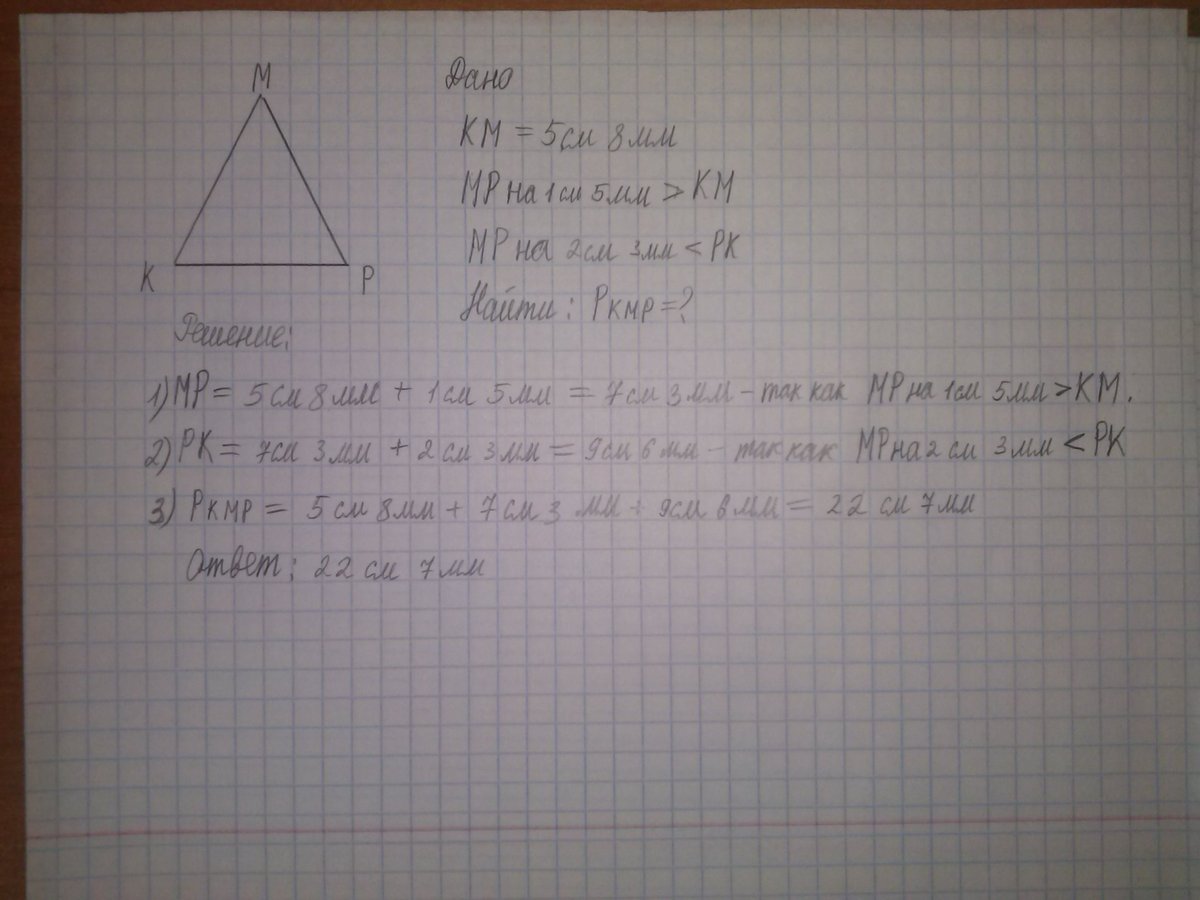 M
K
P
Дано
KM = 5см 8мм
MP на 1см 5мм > KM
MP на 2см 3мм < PK
Найти: PKMP = ?
Решение:
1) MP = 5см 8мм + 1см 5мм = 7см 3мм – так как MP на 1см 5мм > KM.
2) PK = 7см 3мм + 2см 3мм = 9см 6мм – так как MP на 2см 3мм < PK
3) PKMP = 5см 8мм + 7см 3мм + 9см 6мм = 22см 7мм
Ответ: 22см 7мм